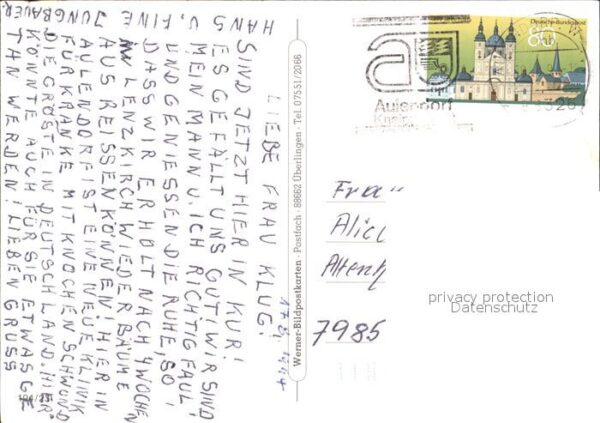 LIEBE FRAU KLUG!
17.8.1994
SIND JETZT HIER IN KUR!
ES GEFÄLLT UNS GUT! WIR SIND
MEIN MANN U. ICH RICHTIG FAUL!
UND GENIESSEN DIE RUHE, SO!
DASS WIR ERHOLT NACH 4 WOCHEN
IN LENZKIRCH WIEDER BÄUME
AUSREISSEN KÖNNEN! HIER IN
AULENDORF IST EINE NEUE KLINIK
FÜR KRANKE MIT KNOCHENSCHWUND
DIE GRÖSTE IN DEUTSCHLAND. HIER
KÖNNTE AUCH FÜR SIE ETWAS GE
TAN WERDEN! LIEBEN GRUSS
HANS U. FINE JUNGBAUER
Werner-Bildpostkarten · Postfach · 88662 Überlingen · Tel. 07551/2066
Deutsche Bundespost
80
Aulendorf
Frau
Alici
Altenk
7985
privacy protection
Datenschutz